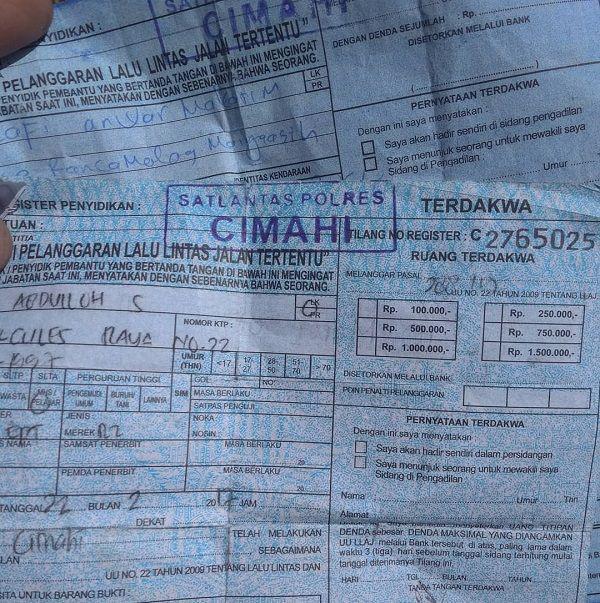 NYIDIKAN :
CIMAHI
DENGAN DENDA SEJUMLAH : Rp.
DISETORKAN MELALUI BANK
PELANGGARAN LALU LINTAS JALAN TERTENTU"
PENYIDIK PEMBANTU YANG BERTANDA TANGAN DI BAWAH INI MENGINGAT
JABATAN SAAT INI, MENYATAKAN DENGAN SEBENARNYA BAHWA SEORANG.
LK
PR
PERNYATAAN TERDAKWA
Dengan ini saya menyatakan
Saya akan hadir sendiri di sidang pengadilan
Saya menunjuk seorang untuk mewakili saya
Sidang di Pengadilan :
Umur
anwar
IDENTITAS KENDARAAN
REGISTER PENYIDIKAN :
SATLANTAS POLRES
CIMAHI
TERDAKWA
TUAN :
TILANG NO REGISTER : C2765025
RUANG TERDAKWA
PELANGGARAN LALU LINTAS JALAN TERTENTU"
PENYIDIK PEMBANTU YANG BERTANDA TANGAN DI BAWAH INI MENGINGAT
JABATAN SAAT INI, MENYATAKAN DENGAN SEBENARNYA BAHWA SEORANG.
MELANGGAR PASAL
UU NO. 22 TAHUN 2009 TENTANG LLAJ
ABDULLOH S
LK
PR
Rp. 100.000,-
Rp. 250.000,-
Rp. 500.000,-
Rp. 750.000,-
Rp. 1.000.000,-
Rp. 1.500.000,-
NOMOR KTP :
RAYA NO.22
UMUR (THN) <17 17-27 28-50 51-70 > 70
DISETOR MELALUI BANK
POIN PENALTI PELANGGARAN
SLTP SLTA PERGURUAN TINGGI
SIM
GOL: NO:
MASA BERLAKU
SATPAS PENGUJI
WASTA MHS/PELAJAR PENGEMUDI UMUM BURUH/TANI LAINNYA
JENIS :
NOKA :
MEREK R2
NOSIN :
NAMA
SAMSAT PENERBIT
MASA BERLAKU
PEMDA PENERBIT
MASA BERLAKU
PERNYATAAN TERDAKWA
Dengan ini saya menyatakan
Saya akan hadir dalam persidangan
Saya menunjuk seorang untuk mewakili saya
Sidang di Pengadilan
Nama
Umur Thn
Alamat
TANGGAL 22 BULAN 2 20 JAM
DEKAT
Cimahi
TELAH MELAKUKAN
SEBAGAIMANA
UU NO. 22 TAHUN 2009 TENTANG LALU LINTAS DAN
UANG TITIPAN
DENDA sebesar DENDA MAKSIMAL YANG DIANCAMKAN
UU LLAJ melalui Bank tersebut di atas, paling lama dalam
waktu 3 (tiga) hari sebelum tanggal sidang terhitung mulai
tanggal diterimanya Tilang ini.
HARI TGL BULAN TAHUN
TANDA TANGAN TERDAKWA
SITA UNTUK BARANG BUKTI :